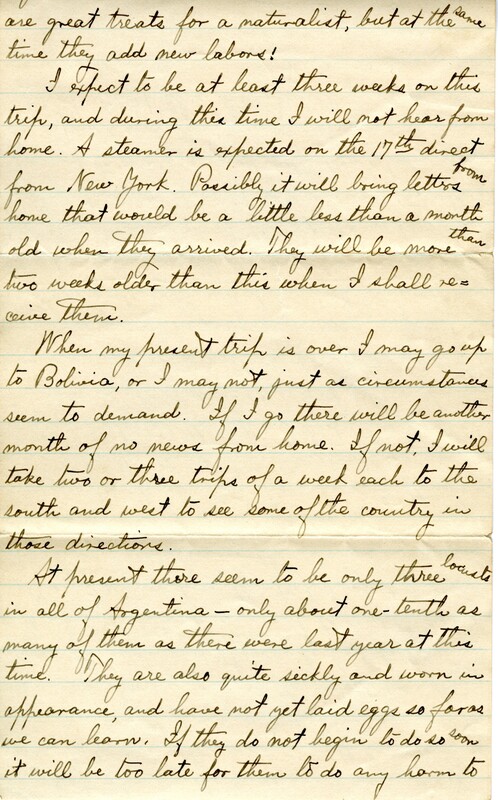 are great treats for a naturalist, but at the same
time they add new labors!
I expect to be at least three weeks on this
trip, and during this time I will not hear from
home. A steamer is expected on the 17th direct
from New York. Possibly it will bring letters from
home that would be a little less than a month
old when they arrived. They will be more than
two weeks older than this when I shall re=
ceive them.
When my present trip is over I may go up
to Bolivia, or I may not, just as circumstances
seem to demand. If I go there will be another
month of no news from home. If not, I will
take two or three trips of a week each to the
south and west to see some of the country in
those directions.
At present there seem to be only three locusts
in all of Argentina — only about one-tenth as
many of them as there were last year at this
time. They are also quite sickly and worn in
appearance, and have not yet laid eggs so far as
we can learn. If they do not begin to do so soon
it will be too late for them to do any harm to